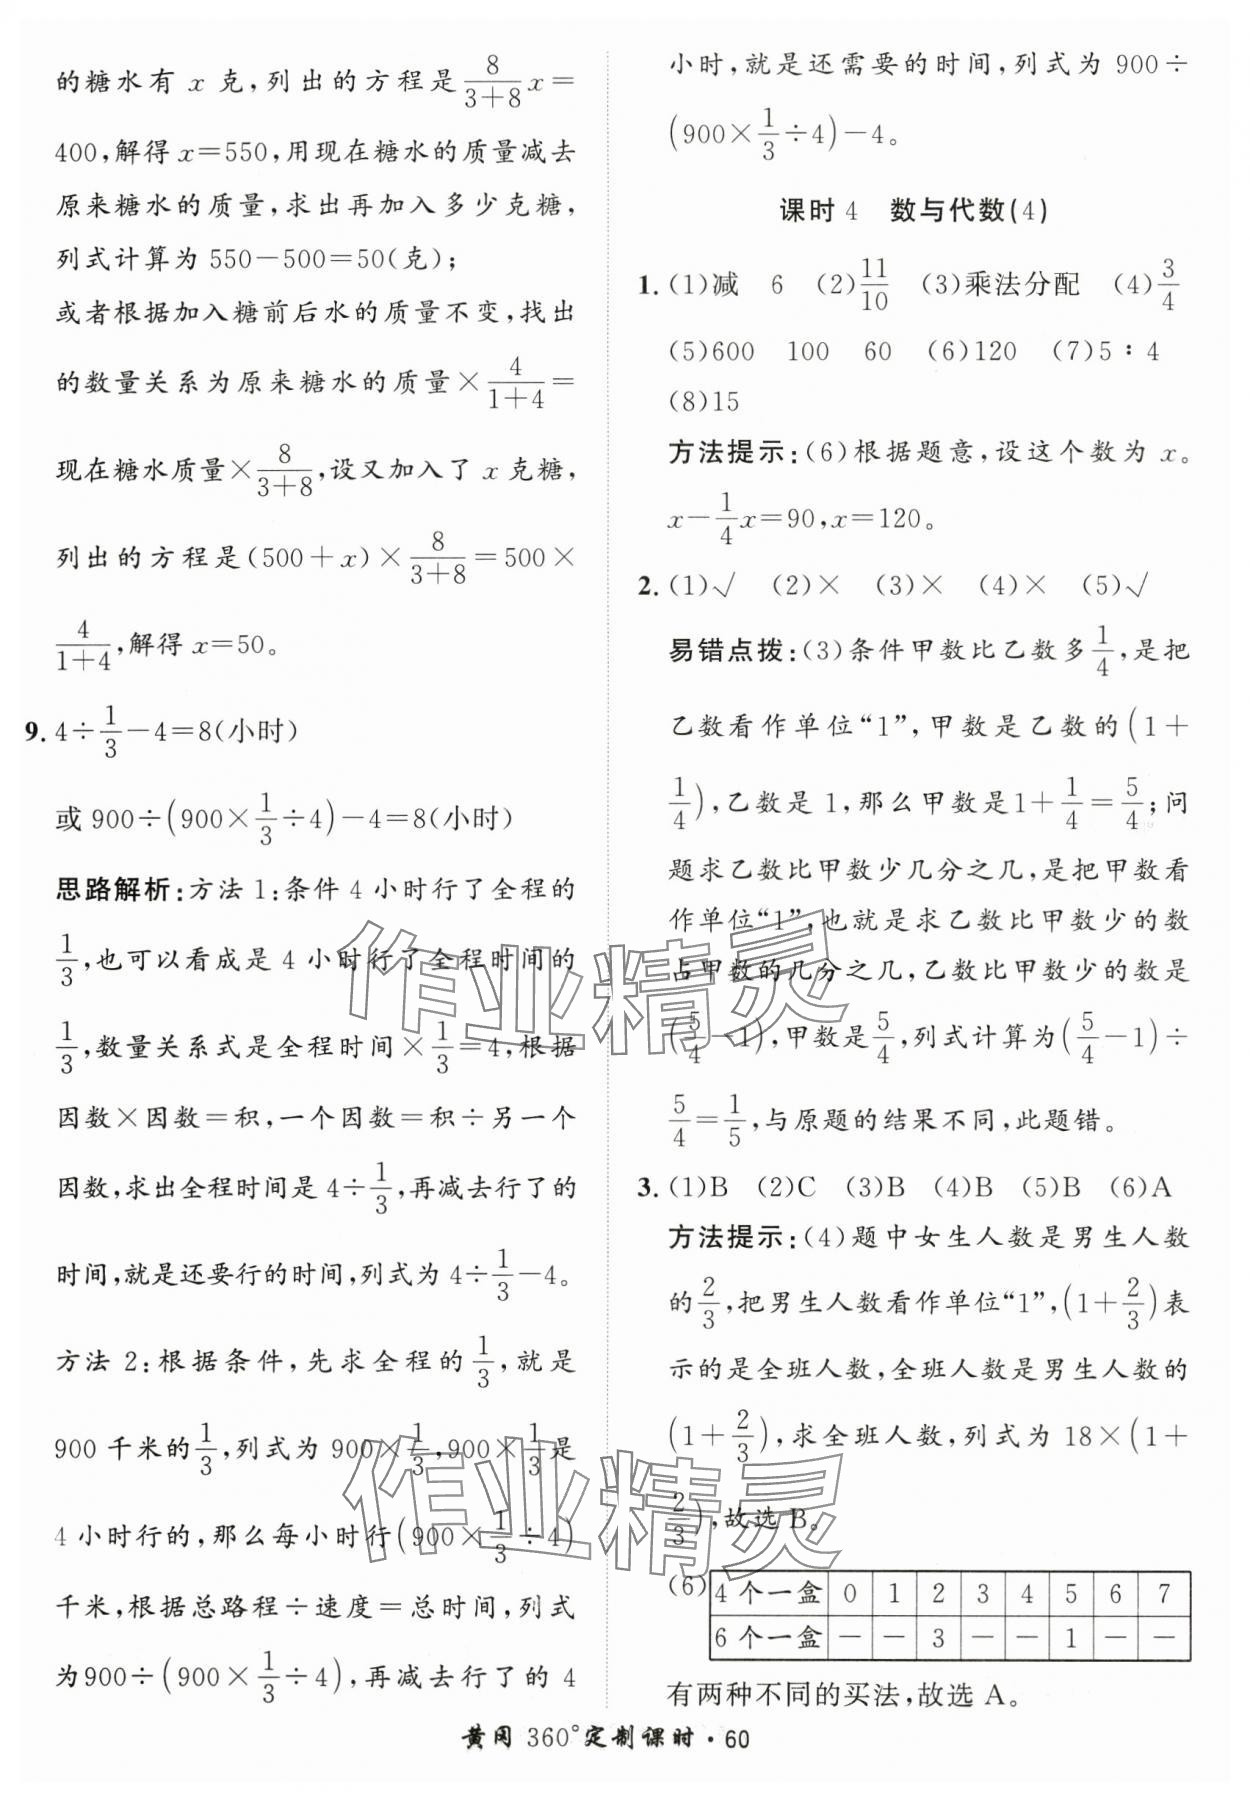 的糖水有 x 克,列出的方程是 8/(3+8) x=
400,解得 x=550,用现在糖水的质量减去
原来糖水的质量,求出再加入多少克糖,
列式计算为 550-500=50(克);
或者根据加入糖前后水的质量不变,找出
的数量关系为原来糖水的质量× 4/(1+4) =
现在糖水质量× 8/(3+8) ,设又加入了 x 克糖,
列出的方程是(500+x)× 8/(3+8) =500×
4/(1+4) ,解得 x=50。
9. 4÷1/3-4=8(小时)
或 900÷(900×1/3÷4)-4=8(小时)
思路解析:方法 1:条件 4 小时行了全程的
1/3,也可以看成是 4 小时行了全程时间的
1/3,数量关系式是全程时间×1/3=4,根据
因数×因数=积,一个因数=积÷另一个
因数,求出全程时间是 4÷1/3,再减去行了的
时间,就是还要行的时间,列式为 4÷1/3-4。
方法 2:根据条件,先求全程的1/3,就是
900 千米的1/3,列式为 900×1/3,900×1/3是
4 小时行的,那么每小时行(900×1/3÷4)
千米,根据总路程÷速度=总时间,列式
为900÷(900×1/3÷4),再减去行了的 4
小时,就是还需要的时间,列式为 900÷
(900×1/3÷4)-4。
课时 4 数与代数(4)
1. (1)减 6 (2)11/10 (3)乘法分配 (4)3/4
(5)600 100 60 (6)120 (7)5∶4
(8)15
方法提示:(6)根据题意,设这个数为 x。
x-1/4x=90,x=120。
2. (1)√ (2)× (3)× (4)× (5)√
易错点拨:(3)条件甲数比乙数多1/4,是把
乙数看作单位“1”,甲数是乙数的(1+
1/4),乙数是 1,那么甲数是1+1/4=5/4;问
题求乙数比甲数少几分之几,是把甲数看
作单位“1”,也就是求乙数比甲数少的数
占甲数的几分之几,乙数比甲数少的数是
(5/4-1),甲数是5/4,列式计算为(5/4-1)÷
5/4=1/5,与原题的结果不同,此题错。
3. (1)B (2)C (3)B (4)B (5)B (6)A
方法提示:(4)题中女生人数是男生人数
的2/3,把男生人数看作单位“1”,(1+2/3)表
示的是全班人数,全班人数是男生人数的
(1+2/3),求全班人数,列式为 18×(1+
2/3),故选 B。
(6) 4 个一盒 0 1 2 3 4 5 6 7
6 个一盒 — — 3 — — 1 — —
有两种不同的买法,故选 A。
黄冈 360°定制课时·60
作业精灵
作业精灵